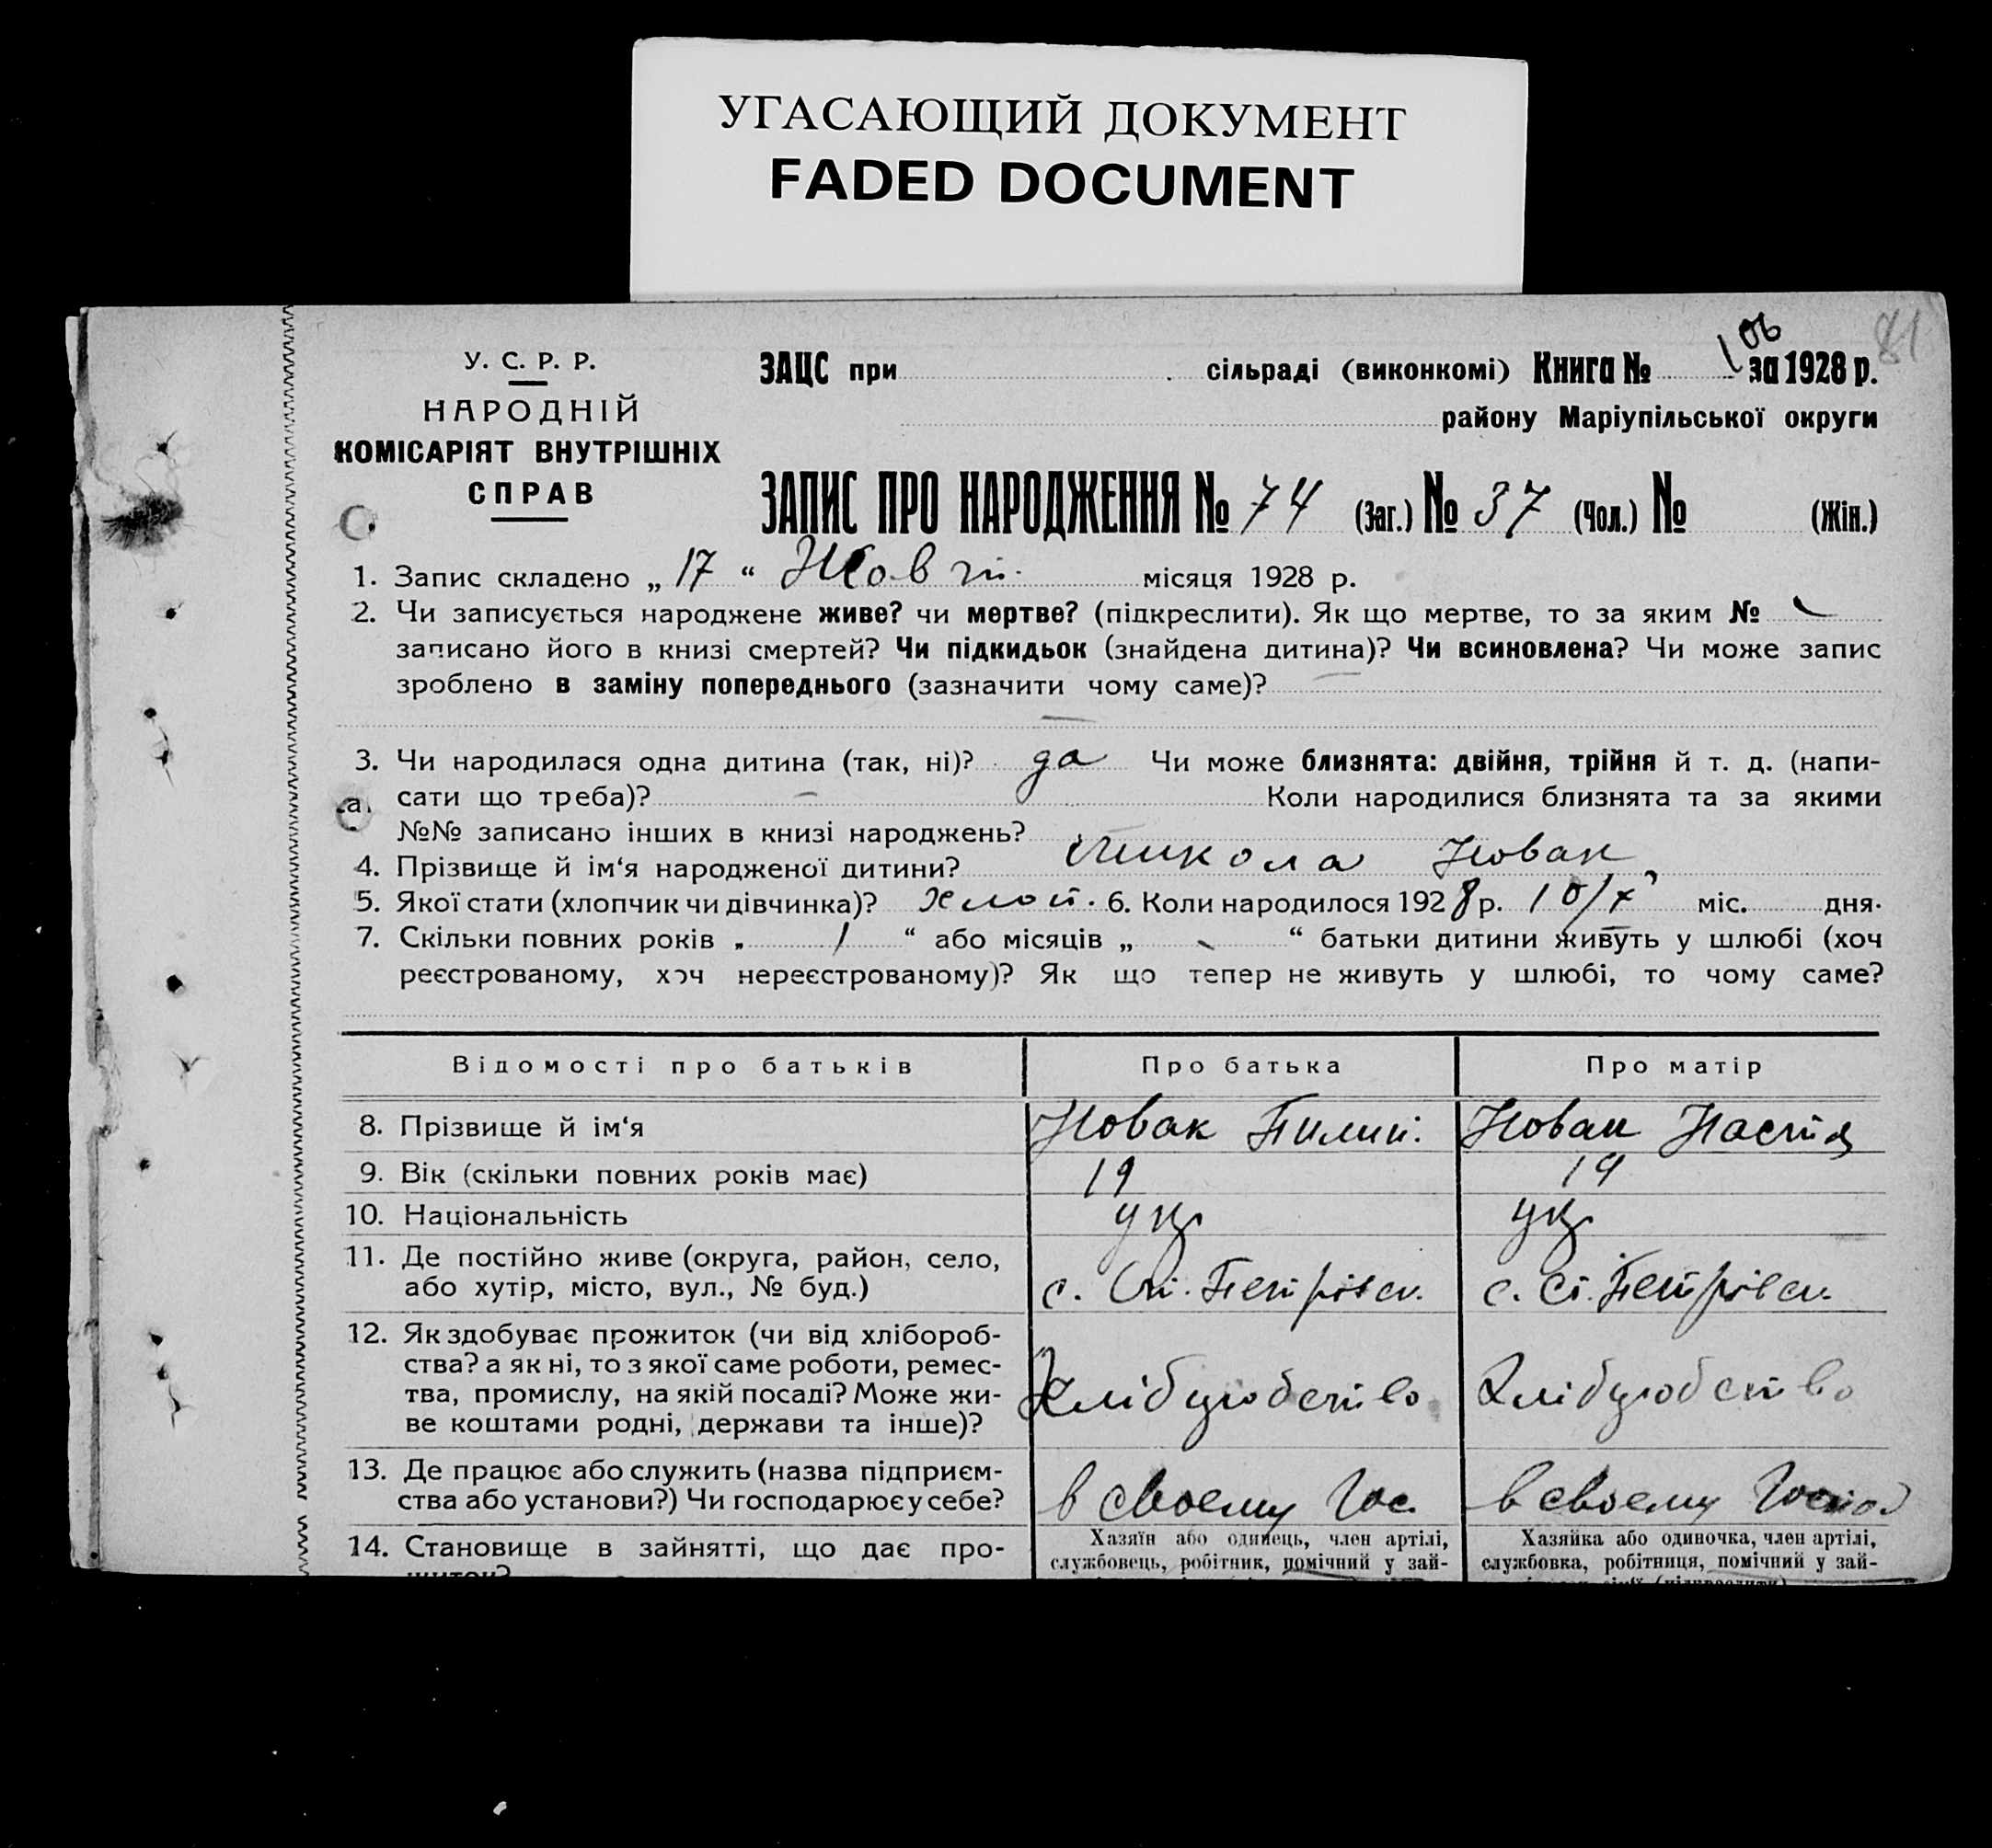 УГАСАЮЩИЙ ДОКУМЕНТ
FADED DOCUMENT
81
106
У. С. Р. Р.
НАРОДНІЙ
КОМІСАРІЯТ ВНУТРІШНІХ
СПРАВ
ЗАЦС при сільраді (виконкомі) Книга № за 1928 р.
району Маріупільської округи
ЗАПИС ПРО НАРОДЖЕННЯ № 74 (Заг.) № 37 (Чол.) № (Жін.)
1. Запис складено „ 17 “ Жовт. місяця 1928 р.
2. Чи записується народжене живе? чи мертве? (підкреслити). Як що мертве, то за яким №
записано його в книзі смертей? Чи підкидьок (знайдена дитина)? Чи всиновлена? Чи може запис
зроблено в заміну попереднього (зазначити чому саме)? —
—
3. Чи народилася одна дитина (так, ні)? да Чи може близнята: двійня, трійня й т. д. (напи-
сати що треба)? — Коли народилися близнята та за якими
№№ записано інших в книзі народжень?
4. Прізвище й ім‘я народженої дитини? Микола Новак
5. Якої стати (хлопчик чи дівчинка)? Хлоп. 6. Коли народилося 1928 р. 10/X міс. дня.
7. Скільки повних років „ 1 “ або місяців „ - “ батьки дитини живуть у шлюбі (хоч
реєстрованому, хоч нереєстрованому)? Як що тепер не живуть у шлюбі, то чому саме?
Відомості про батьків Про батька Про матір
8. Прізвище й ім‘я Новак Пилип. Новак Настя
9. Вік (скільки повних років має) 19 19
10. Національність укр укр
11. Де постійно живе (округа, район, село,
або хутір, місто, вул., № буд.) с. Ст. Петрівск. с. Ст. Петрівск.
12. Як здобуває прожиток (чи від хлібороб-
ства? а як ні, то з якої саме роботи, ремес-
тва, промислу, на якій посаді? Може жи- Хлібуробство Хлібуробство
ве коштами родні, держави та інше)?
13. Де працює або служить (назва підприєм-
ства або установи?) Чи господарює у себе? в своему Гос. в своему Господ
14. Становище в зайнятті, що дає про-
житок?
Хазяїн або одинець, член артілі,
службовець, робітник, помічний у зай-
Хазяйка або одиночка, член артілі,
службовка, робітниця, помічний у зай-